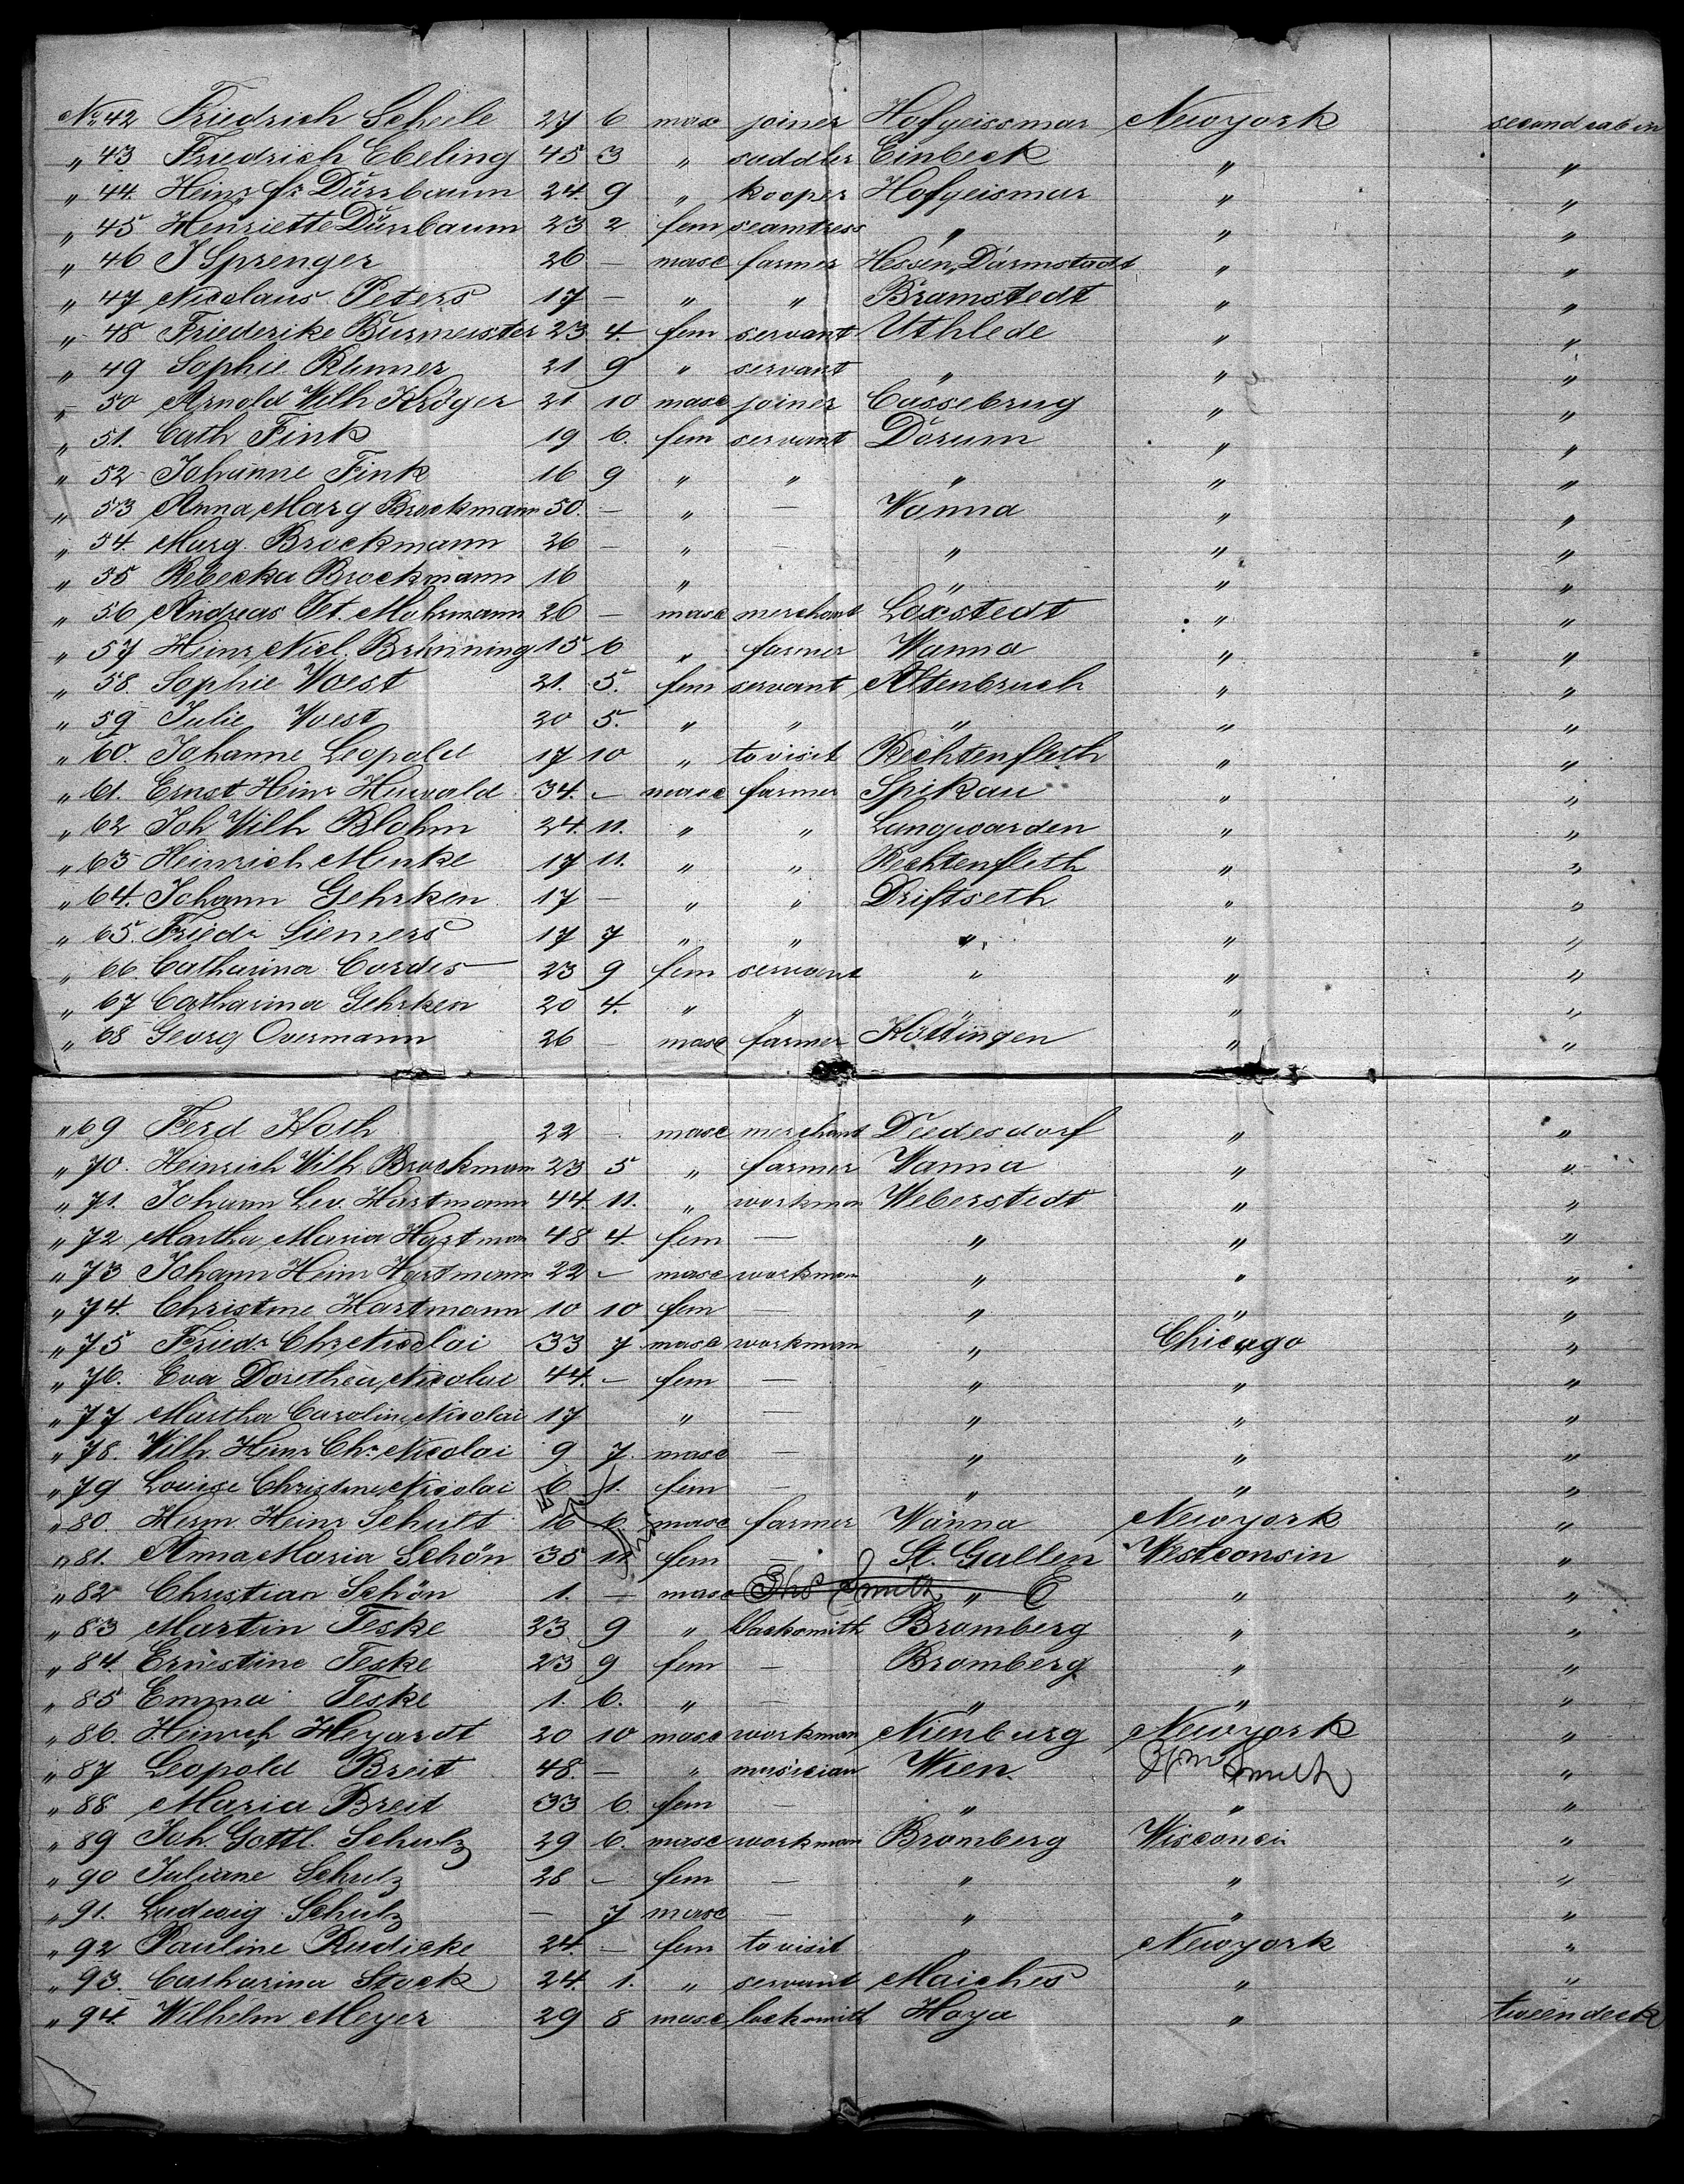 No. 42 Friedrich Scheele 27 6 masc joiner Hofgeissmar Newyork second cabin
" 43 Friedrich Ebeling 45 3 " saddler Einbeck " "
" 44. Heinr. fr Dürrbaum 24. 9 " kooper Hofgeismar " "
" 45 Henriette Dürrbaum 23 2 fem seamtress " " "
" 46 J Sprenger 26 — masc farmer Hessen Darmstadt " "
" 47 Nicolaus Peters 17 — " " Bramstedt " "
" 48 Friederike Burmeister 23 4. fem servant Uthlede " "
" 49 Sophie 21 9 " servant " " "
" 50 Arnold Wilh Kröger 21 10 masc joiner Cassebrug " "
" 51. Cath Fink 19 6. fem servant Dorum " "
" 52 Johanne Fink 16 9 " " " " "
" 53 Anna Marg Brockmann 50. — " — Wanna " "
" 54. Marg. Brockmann 26 — " " " "
" 55 Rebecka Brockmann 16 " " " "
" 56 Andreas Mohrmann 26 — masc merchant Loxstedt " "
" 57 Heinr Nicl. Brünning 15 6 " farmer Wanna " "
" 58. Sophie Woest 21. 5. fem servant Altenbruch " "
" 59 Julie Woest 20 5. " " " " "
" 60. Johanne Leopold 17 10 " to visit Rechtenfleth " "
" 61. Ernst Heinr 34. — masc farmer Spikau " "
" 62 Joh Wilh Blohm 24. 11. " " Langwarden " "
" 63 Heinrich Menke 17 11. " " Rechtenfleth " "
" 64. Johann Gehrken 17 — " " Driftseth " "
" 65. Friedr Siemers 17 7 " " " " "
" 66 Catharina Cordes 23 9 fem servant " " "
" 67 Catharina Gehrken 20 4. " " " " "
" 68 Georg Overmann 26 — masc farmer " "
" 69 Ferd Koth 22 — masc merchant Dedesdorf " "
" 70. Heinrich Wilh Brockmann 23 5 " farmer Wanna " "
" 71. Johann Lev. Hartmann 44. 11. " workman Weberstedt " "
" 72 Martha Maria Hartman 48 4. fem — " " "
" 73 Johann Heinr Hartmann 22 — masc workman " " "
" 74. Christine Hartmann 10 10 fem — " " "
" 75 Friedr Chr Nicolai 33 7 masc workman " Chicago "
" 76. Eva Dorethea Nicolai 44. — fem — " " "
" 77 Martha Caroline Nicolai 17 " — " " "
" 78. Wilh. Heinr Chr. Nicolai 9 7. masc — " " "
" 79 Louise Christine Nicolai 6 1. fem — " " "
" 80. Herm. Heinr Schult 16 6 masc farmer Wanna Newyork "
" 81. Anna Maria Schön 35 11 fem — St. Gallen Westconsin "
" 82 Christian Schön 1. — masc " " "
" 83 Martin Teske 23 9 " locksmith Bromberg " "
" 84. Ernestine Teske 23 9 fem — Bromberg " "
" 85 Emma Teske 1. 6. " — " " "
" 86. Heinrich Heyardt 20 10 masc workman Nienburg Newyork "
" 87 Leopold Breit 48. — " musician Wien. Smith "
" 88. Maria Breit 33 6. fem — " " "
" 89 Joh. Gottl. Schulz 29 6. masc workman Bromberg Wisconsi "
" 90 Juliane Schulz 28 — fem — " " "
" 91. Ludwig Schulz — 7 masc — " " "
" 92 Pauline Rudicke 24. — fem to visit " Newyork "
" 93. Catharina Stock 24. 1. " servant Maiches " "
" 94. Wilhelm Meyer 29 8 masc locksmith Hoya " tweendeck